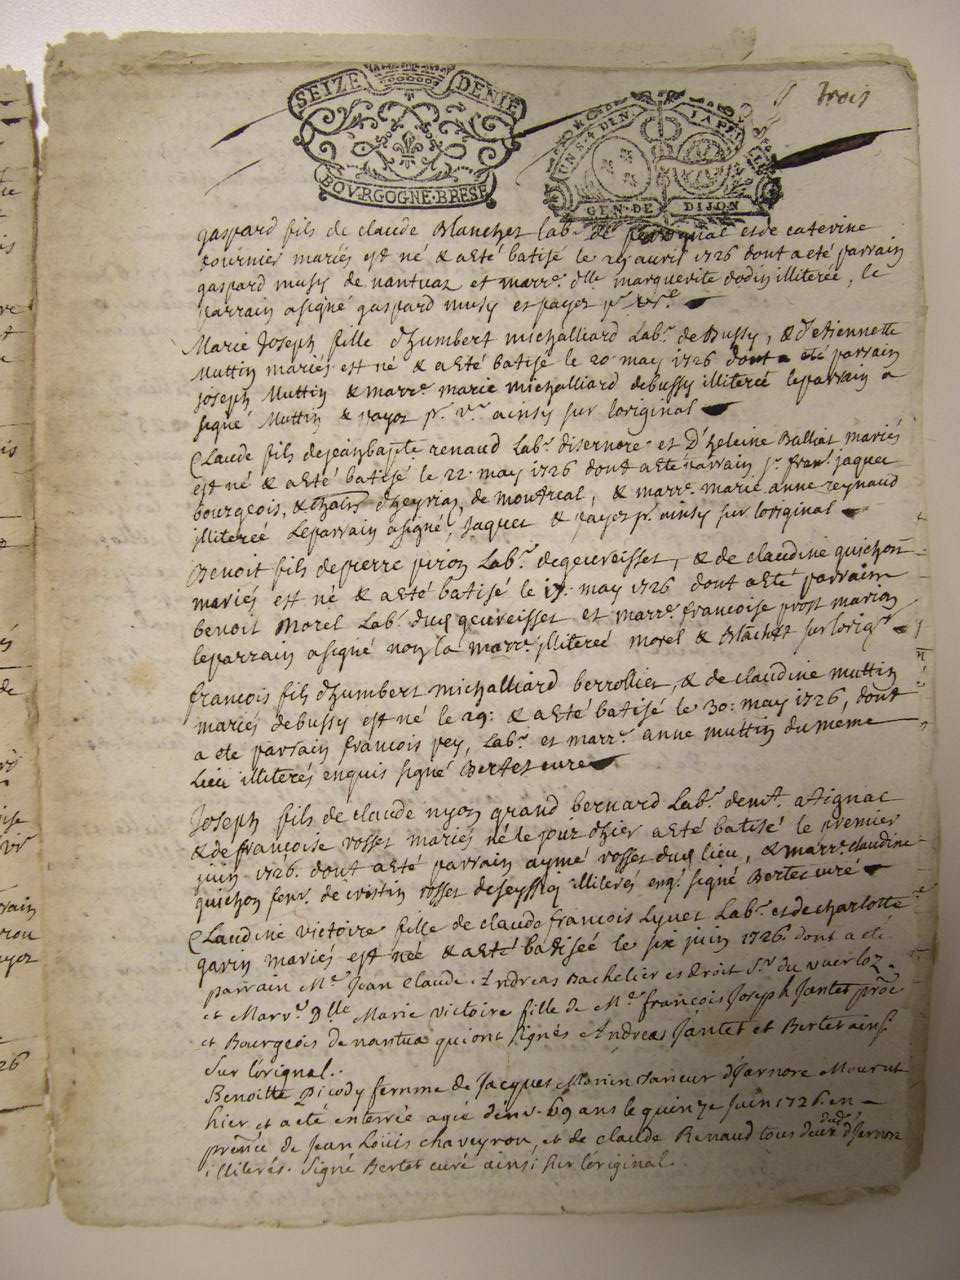 trois
SEIZE DENIE
BOVRGOGNE·BRESE
UN S. 4 DEN. LA P
GEN·DE DIJON
gaspard fils de claude Blanchet lab.r de et de caterine
fournier mariés est né & a eté batisé le avril 1726 dont a eté parrain
gaspard musy de nantuaz et marr.e d.lle marguerite dodin illiterée, le
parrain a signé gaspard musy et payer p.r v.re
Marie Joseph fille d'humbert michalliard Lab.r de Bussy, & d'etiennette
Muttin mariés est né & a eté batisé le 20 may 1726 dont a eté parrain
joseph Muttin & marr.e marie michalliard de bussy illiterée le parrain a
signé Muttin & payez p.r v.re ainsy sur loriginal
Claude fils de jean baptte renaud Lab.r disernore et D'heleine Balliat mariés
est né & a eté batisé le 22 may 1726 dont a ete parrain s.r fran.s jaquet
bourgeois, & d'heyriaz de montreal, & marr.e marie anne reynaud
illiterée Le parrain a signé, Jaquet & payez p.r ainsy sur loriginal
Benoit fils de pierre piron Lab.r de geuvreisset, & de claudine quichon
mariés est né & a eté batisé le may 1726 dont a eté parrain
benoit Morel Lab.r dud geuvreisset et marr.e francoise prost marion
le parrain a signé non la marr.e illiterée morel & sur lorig.l
francois fils d'humbert michalliard berrollier, & de claudine muttin
mariés de bussy est né le 29: & a eté batisé le 30: may 1726, dont
a ete parrain francois pey, Lab.r et marr.e anne muttin du meme
Lieu illiterés enquis signé Bertet curé
Joseph fils de claude nyon grand bernard Lab.r atignac
& de françoise rosset mariés né le jour d'hier a eté batisé le premier
juin 1726. dont a eté parrain aymé rosset dud lieu, & marr.e claudine
quichon fem.e de cristin rosset de seyssia illiterés enq.s signé Bertet curé
Claudine victoire fille de claude françois Lyvet Lab.r et de charlotte
garin mariés est née & a eté batiseé le six juin 1726 dont a eté
parrain M.r Jean Claude Andreas Bachelier es droit S.r du
et Marr.e D.lle Marie victoire fille de M.re francois Joseph Jantet
et Bourgeois de nantua qui ont signés Andreas Jantet et Bertet ainsi
sur l'original.
Benoitte Picody femme de Jacques Monin d'Isarnore Mourut
hier et a eté enterrée ageé d'env. 69 ans le quinze Juin 1726. en
pnce de Jean Loüis chaveyron, et de claude Renaud tous deux dud. d'Isarnore
illiterés. Signé Bertet curé ainsi sur l'original.